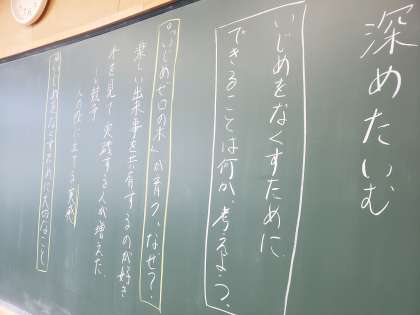 深めたいむ
いじめをなくすために
できることは何か、考えよう。
「いじめゼロの木」が育つ、なぜ？
楽しい出来事を共有するのが好き
木を見て実践する人が増えた
人の役に立てる実感
いじめをなくすために大切なこと